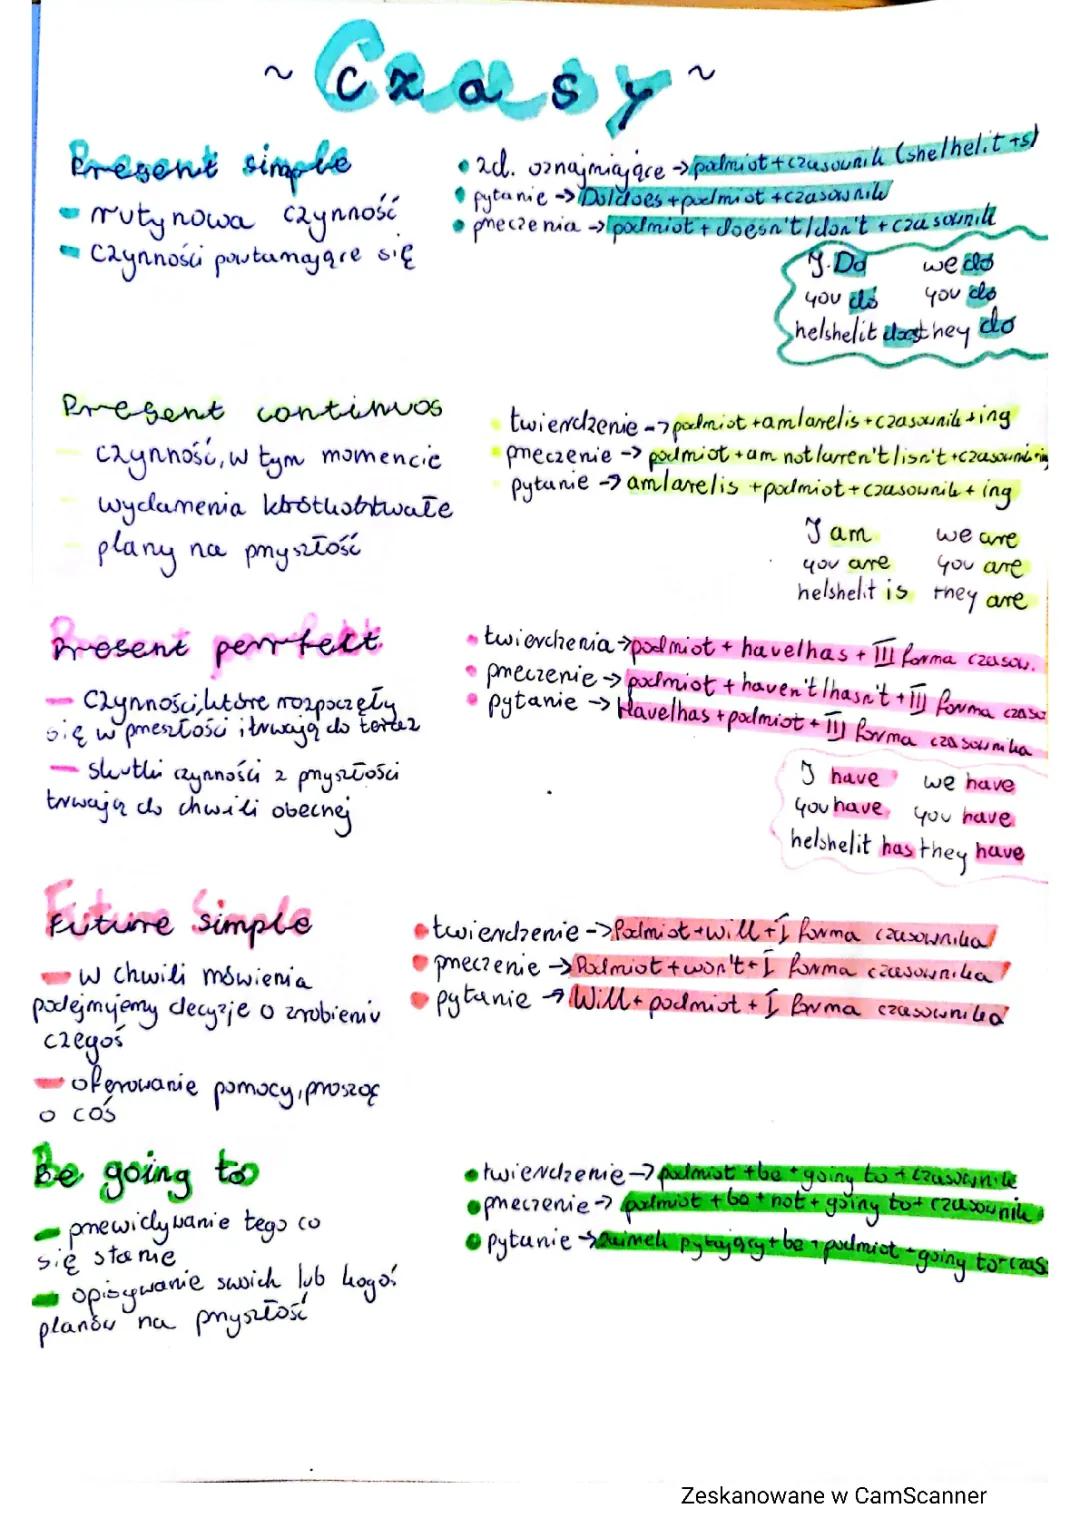 ~ Czasy ~
Present simple
- rutynowa czynność
- czynności powtarzające się
• zd. oznajmiające -> podmiot + czasownik (she/he/it +s)
• pytanie -> Do/does + podmiot + czasownik
• przeczenia -> podmiot + doesn't/don't + czasownik
I Do we do
you do you do
he/she/it does they do
Present continuos
czynność, w tym momencie
wydarzenia krótkotrwałe
plany na przyszłość
twierdzenie -> podmiot + am/are/is + czasownik + ing
przeczenie -> podmiot + am not/aren't/isn't + czasownik ing
pytanie -> am/are/is + podmiot + czasownik + ing
I am we are
you are you are
he/she/it is they are
Present perfect
- Czynności, które rozpoczęły
się w przeszłości i trwają do teraz
- skutki czynności z przyszłości
trwają do chwili obecnej
• twierdzenia -> podmiot + have/has + III forma czasow.
• przeczenie -> podmiot + haven't/hasn't + III forma czaso
• pytanie -> Have/has + podmiot + III forma czasownika
I have we have
you have you have
he/she/it has they have
Future Simple
- w chwili mówienia
podejmujemy decyzje o zrobieniu
czegoś
- oferowanie pomocy, prosząc
o coś
• twierdzenie -> Podmiot + will + I forma czasownika
• przeczenie -> Podmiot + won't + I forma czasownika
• pytanie -> Will + podmiot + I forma czasownika
Be going to
- przewidywanie tego co
się stanie
- opisywanie swoich lub kogoś
planów na przyszłość
• twierdzenie -> podmiot + be + going to + czasownik
• przeczenie -> podmiot + be + not + going to + czasownik
• pytanie -> zaimek pytający + be + podmiot + going to + czas
Zeskanowane w CamScanner